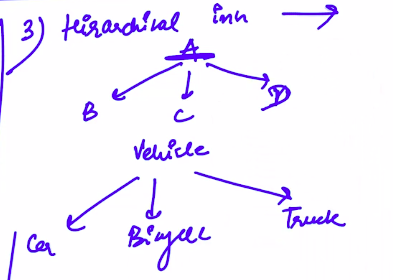 3) Hirarchical inh
A
B C D
Vehicle
Car Bicycle Truck